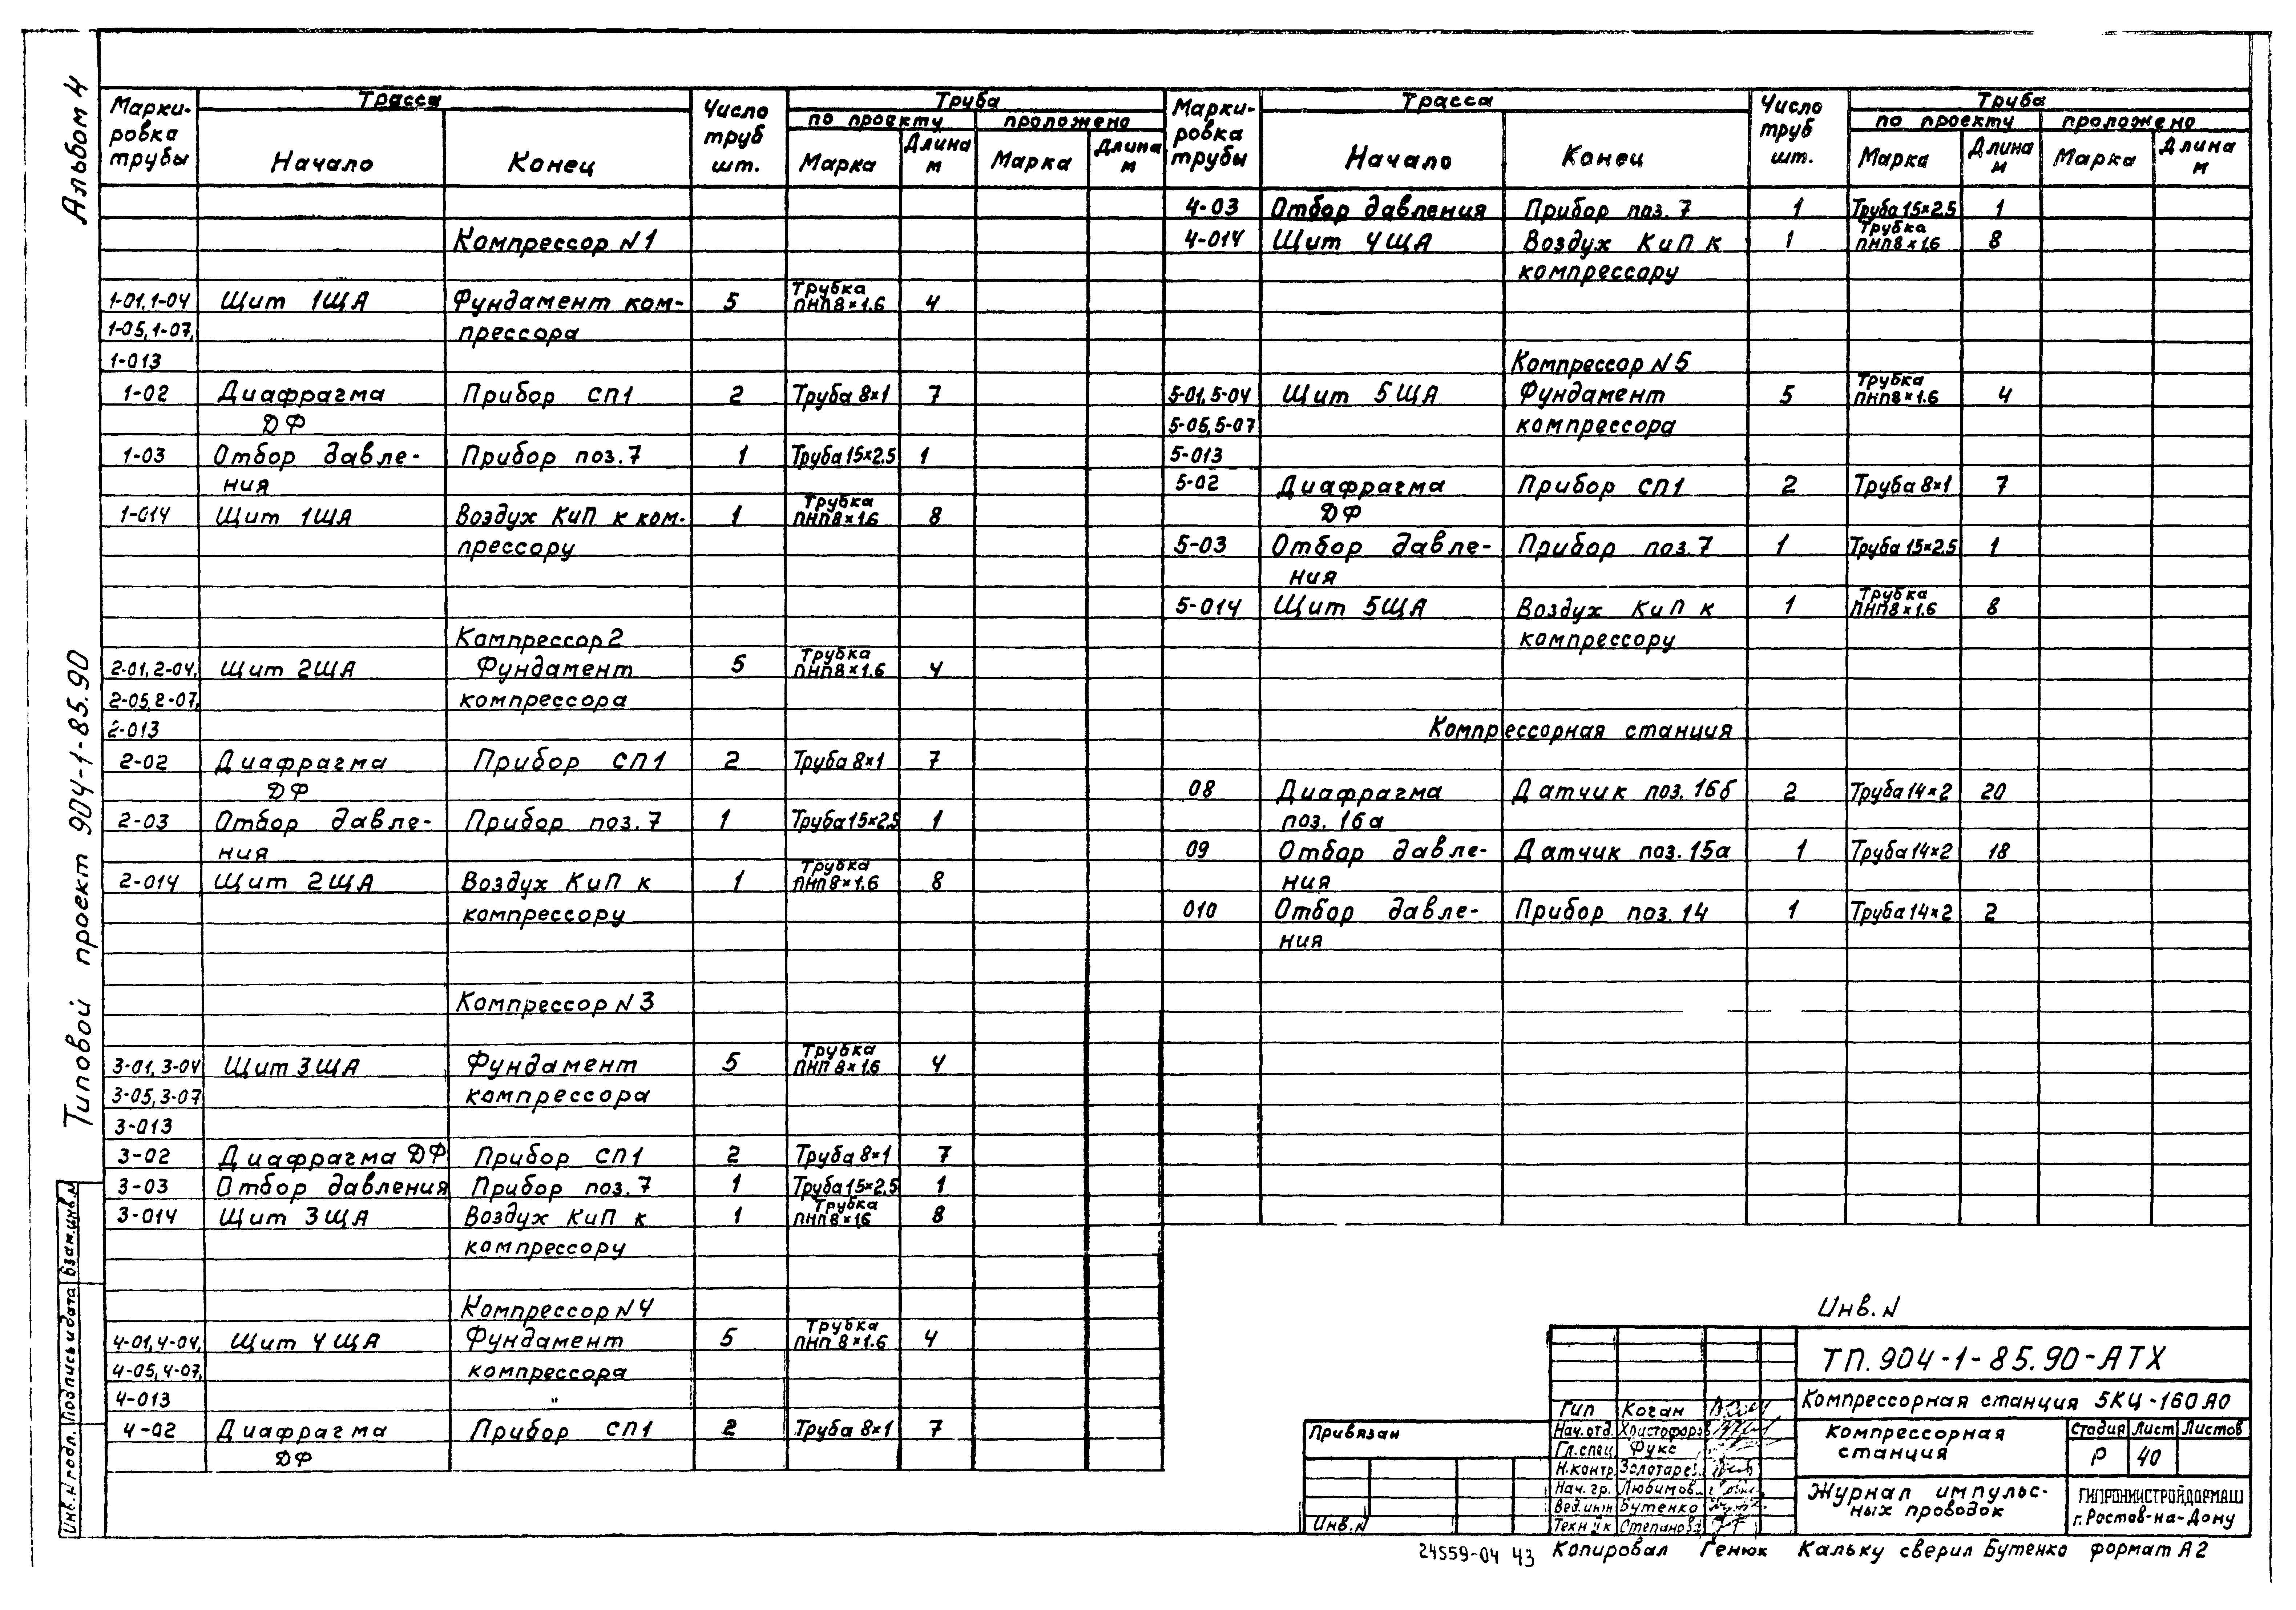 Альбом 4
Типовой проект 904-1-85.90
Взам.инв.N
Подпись и дата
Инв.N подл.
Марки- Трасса Число Труба
ровка Начало Конец труб по проекту проложено
трубы шт. Марка Длина м Марка Длина м
Компрессор N1
1-01,1-04 Щит 1ЩА Фундамент ком- 5 Трубка ПНП8×1.6 4
1-05,1-07, прессора
1-013
1-02 Диафрагма Прибор СП1 2 Труба 8×1 7
ДФ
1-03 Отбор давле- Прибор поз.7 1 Труба 15×2.5 1
ния
1-014 Щит 1ЩА Воздух КиП к ком- 1 Трубка ПНП8×1.6 8
прессору
Компрессор 2
2-01,2-04, Щит 2ЩА Фундамент 5 Трубка ПНП8×1.6 4
2-05,2-07, компрессора
2-013
2-02 Диафрагма Прибор СП1 2 Труба 8×1 7
ДФ
2-03 Отбор давле- Прибор поз.7 1 Труба 15×2.5 1
ния
2-014 Щит 2ЩА Воздух КиП к 1 Трубка ПНП8×1.6 8
компрессору
Компрессор N3
3-01,3-04 Щит 3ЩА Фундамент 5 Трубка ПНП8×1.6 4
3-05,3-07 компрессора
3-013
3-02 Диафрагма ДФ Прибор СП1 2 Труба 8×1 7
3-03 Отбор давления Прибор поз.7 1 Труба 15×2.5 1
3-014 Щит 3ЩА Воздух КиП к 1 Трубка ПНП8×1.6 8
компрессору
Компрессор N4
4-01,4-04, Щит 4ЩА Фундамент 5 Трубка ПНП8×1.6 4
4-05,4-07, компрессора
4-013 "
4-02 Диафрагма Прибор СП1 2 Труба 8×1 7
ДФ
Марки- Трасса Число Труба
ровка Начало Конец труб по проекту проложено
трубы шт. Марка Длина м Марка Длина м
4-03 Отбор давления Прибор поз.7 1 Труба 15×2.5 1
4-014 Щит 4ЩА Воздух КиП к 1 Трубка ПНП8×1.6 8
компрессору
Компрессор N5
5-01,5-04 Щит 5ЩА Фундамент 5 Трубка ПНП8×1.6 4
5-05,5-07 компрессора
5-013
5-02 Диафрагма Прибор СП1 2 Труба 8×1 7
ДФ
5-03 Отбор давле- Прибор поз.7 1 Труба 15×2.5 1
ния
5-014 Щит 5ЩА Воздух КиП к 1 Трубка ПНП8×1.6 8
компрессору
Компрессорная станция
08 Диафрагма Датчик поз.16б 2 Труба 14×2 20
поз. 16а
09 Отбор давле- Датчик поз.15а 1 Труба 14×2 18
ния
010 Отбор давле- Прибор поз.14 1 Труба 14×2 2
ния
Инв.N
ТП.904-1-85.90-АТХ
Компрессорная станция 5КЦ-160А0
Гип Коган
Нач.отд. Христофоров
Гл.спец Фукс
Н.контр. Золотарев
Нач.гр. Любимов
Вед.инж Бутенко
Техник Степанова
Привязан
Инв.N
Компрессорная станция
Стадия Лист Листов
Р 40
Журнал импульс-
ных проводок
ГИПРОНИИСТРОЙДОРМАШ
г.Ростов-на-Дону
24559-04 43 Копировал Генюк Кальку сверил Бутенко формат А2